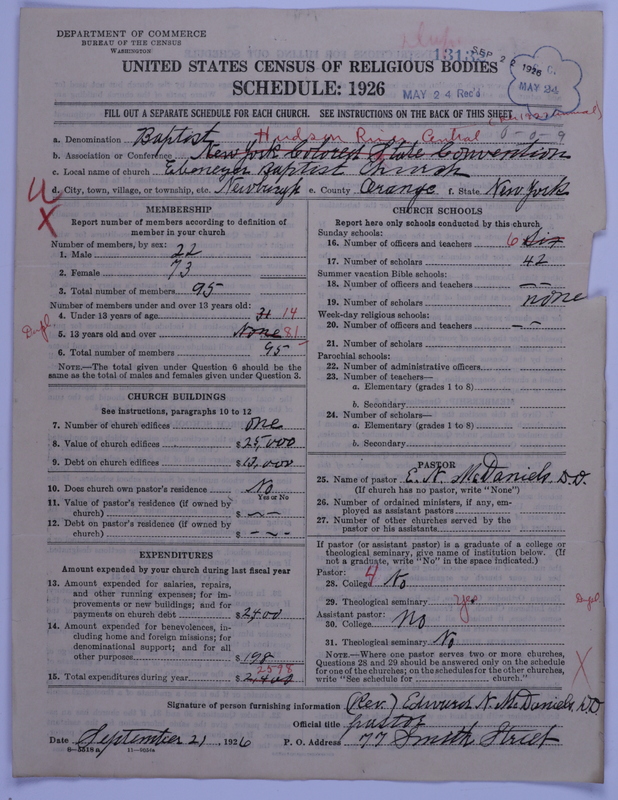 DEPARTMENT OF COMMERCE
BUREAU OF THE CENSUS
WASHINGTON
SEP 22 1926
MAY 24
MAY 24 Rec'd
UNITED STATES CENSUS OF RELIGIOUS BODIES
SCHEDULE: 1926
FILL OUT A SEPARATE SCHEDULE FOR EACH CHURCH. SEE INSTRUCTIONS ON THE BACK OF THIS SHEET
a. Denomination Baptist Hudson River Central 0-0-9
b. Association or Conference New York Colored State Convention
c. Local name of church Ebenezer Baptist Church
d. City, town, village, or township, etc. Newburgh e. County Orange f. State New York
U
X
MEMBERSHIP
Report number of members according to definition of
member in your church
Number of members, by sex:
1. Male 22
2. Female 73
3. Total number of members 95
Number of members under and over 13 years old:
4. Under 13 years of age 31 14
Dupl
5. 13 years old and over None 81
6. Total number of members 95
NOTE.—The total given under Question 6 should be the
same as the total of males and females given under Question 3.
CHURCH BUILDINGS
See instructions, paragraphs 10 to 12
7. Number of church edifices one
8. Value of church edifices $25,000
9. Debt on church edifices $10,000
10. Does church own pastor's residence No
Yes or No
11. Value of pastor's residence (if owned by
church) $ ---
12. Debt on pastor's residence (if owned by
church) $ ---
EXPENDITURES
Amount expended by your church during last fiscal year
13. Amount expended for salaries, repairs,
and other running expenses; for im-
provements or new buildings; and for
payments on church debt $2400
14. Amount expended for benevolences, in-
cluding home and foreign missions; for
denominational support; and for all
other purposes $198
2598
15. Total expenditures during year $2,400
CHURCH SCHOOLS
Report here only schools conducted by this church
Sunday schools:
16. Number of officers and teachers 6 Six
17. Number of scholars 42
Summer vacation Bible schools:
18. Number of officers and teachers --
19. Number of scholars none
Week-day religious schools:
20. Number of officers and teachers --
21. Number of scholars
Parochial schools:
22. Number of administrative officers
23. Number of teachers—
a. Elementary (grades 1 to 8)
b. Secondary
24. Number of scholars—
a. Elementary (grades 1 to 8)
b. Secondary
PASTOR
25. Name of pastor E. N. McDaniels, D.D.
(If church has no pastor, write "None")
26. Number of ordained ministers, if any, em-
ployed as assistant pastors
27. Number of other churches served by the
pastor or his assistant
If pastor (or assistant pastor) is a graduate of a college or
theological seminary, give name of institution below. (If
not a graduate, write "No" in the space indicated.)
Pastor:
28. College 4 No
29. Theological seminary Yes
Dupl
Assistant pastor:
30. College No
31. Theological seminary No
NOTE.—Where one pastor serves two or more churches,
Questions 28 and 29 should be answered only on the schedule
for one of the churches; on the schedules for the other churches,
write "See schedule for church."
X
Signature of person furnishing information (Rev.) Edward N. McDaniels, D.D.
Official title pastor
Date September 21, 1926 P. O. Address 77 Smith Street